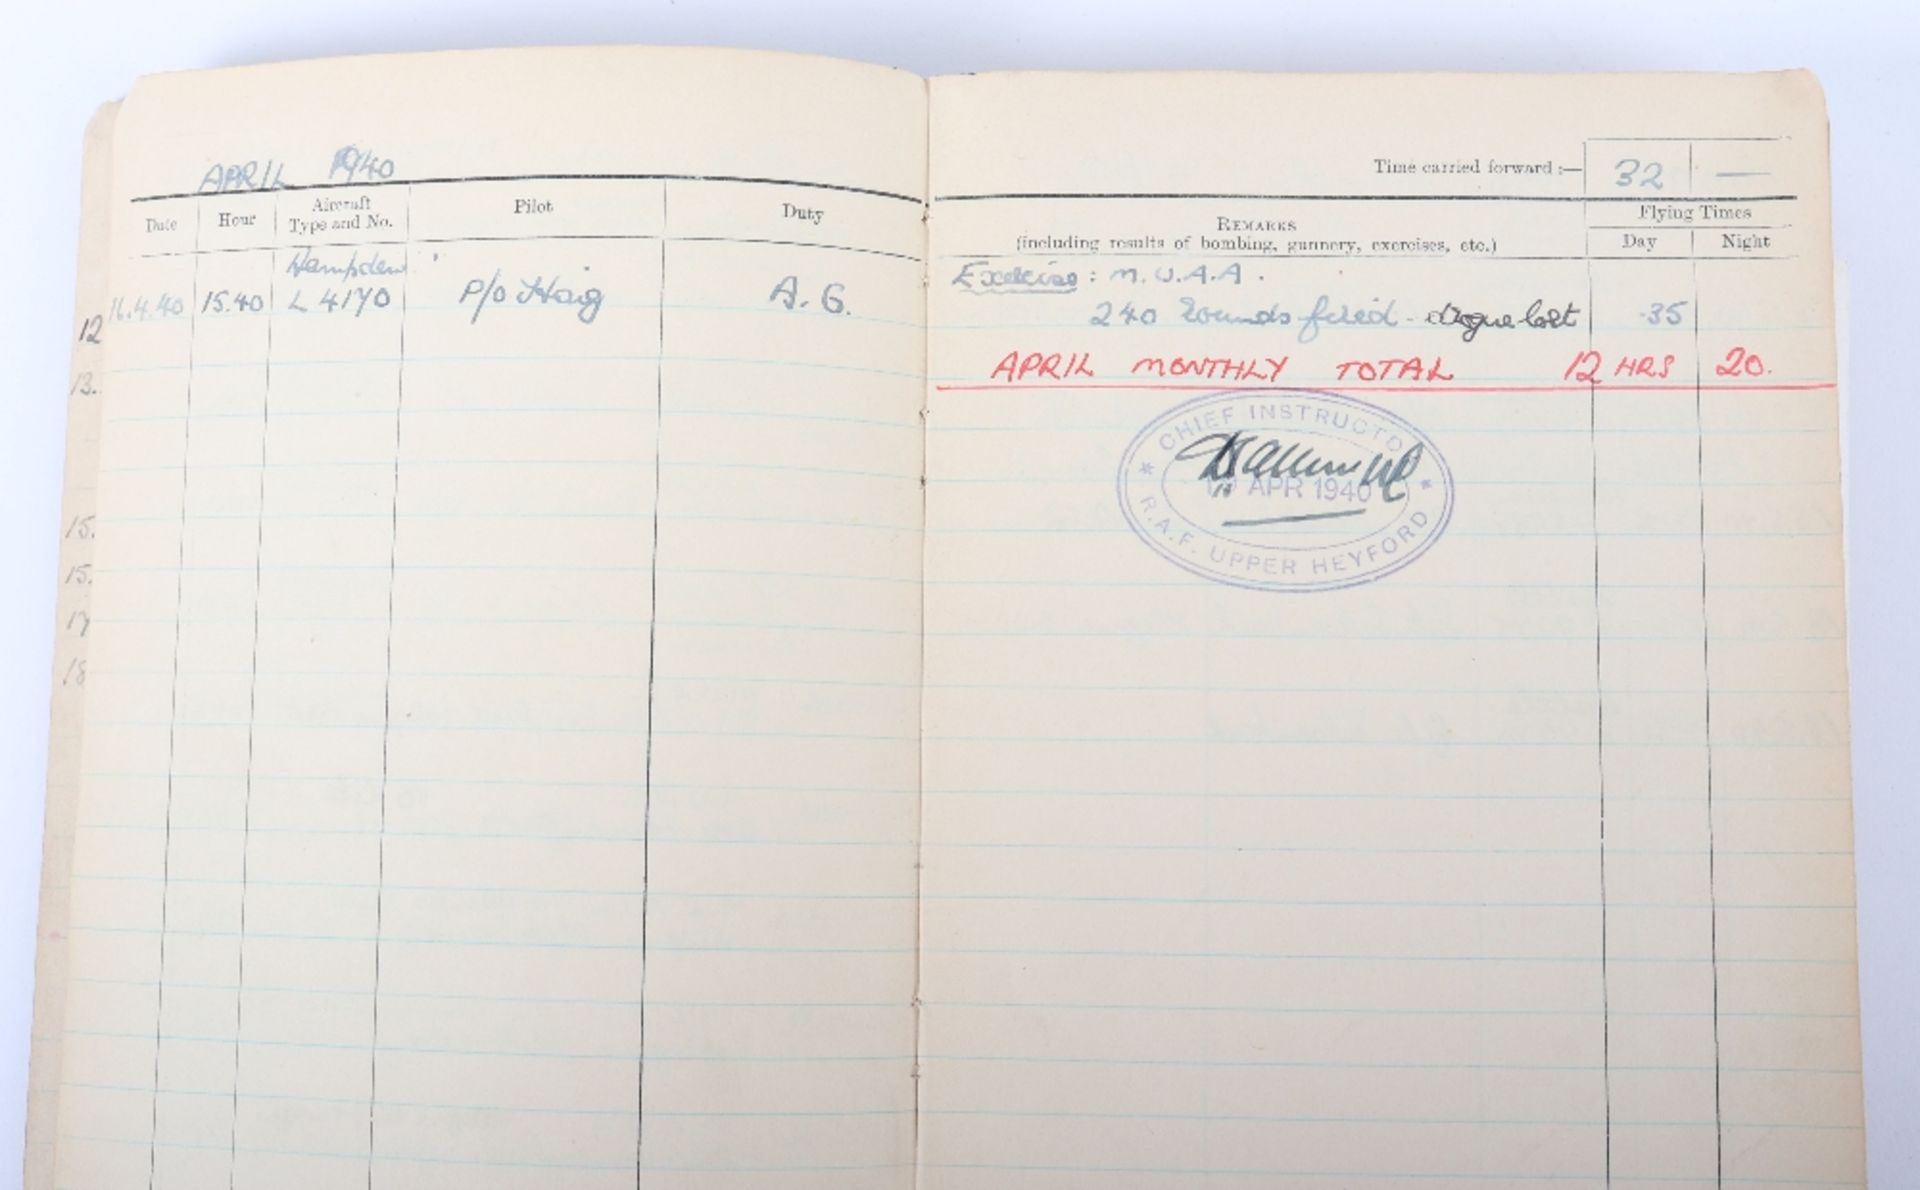 APRIL 1940
Time carried forward :— 32 —
Date Hour Aircraft Type and No. Pilot Duty
REMARKS
(including results of bombing, gunnery, exercises, etc.)
Flying Times
Day Night
Hampden
16.4.40 15.40 L 4170 P/O Haig A.G.
Exercise : M.U.A.A.
240 rounds fired - drogue lost .35
APRIL MONTHLY TOTAL 12 HRS 20.
CHIEF INSTRUCTO
APR 1940
R.A.F. UPPER HEYFORD
12
13.
15.
15.
17
18